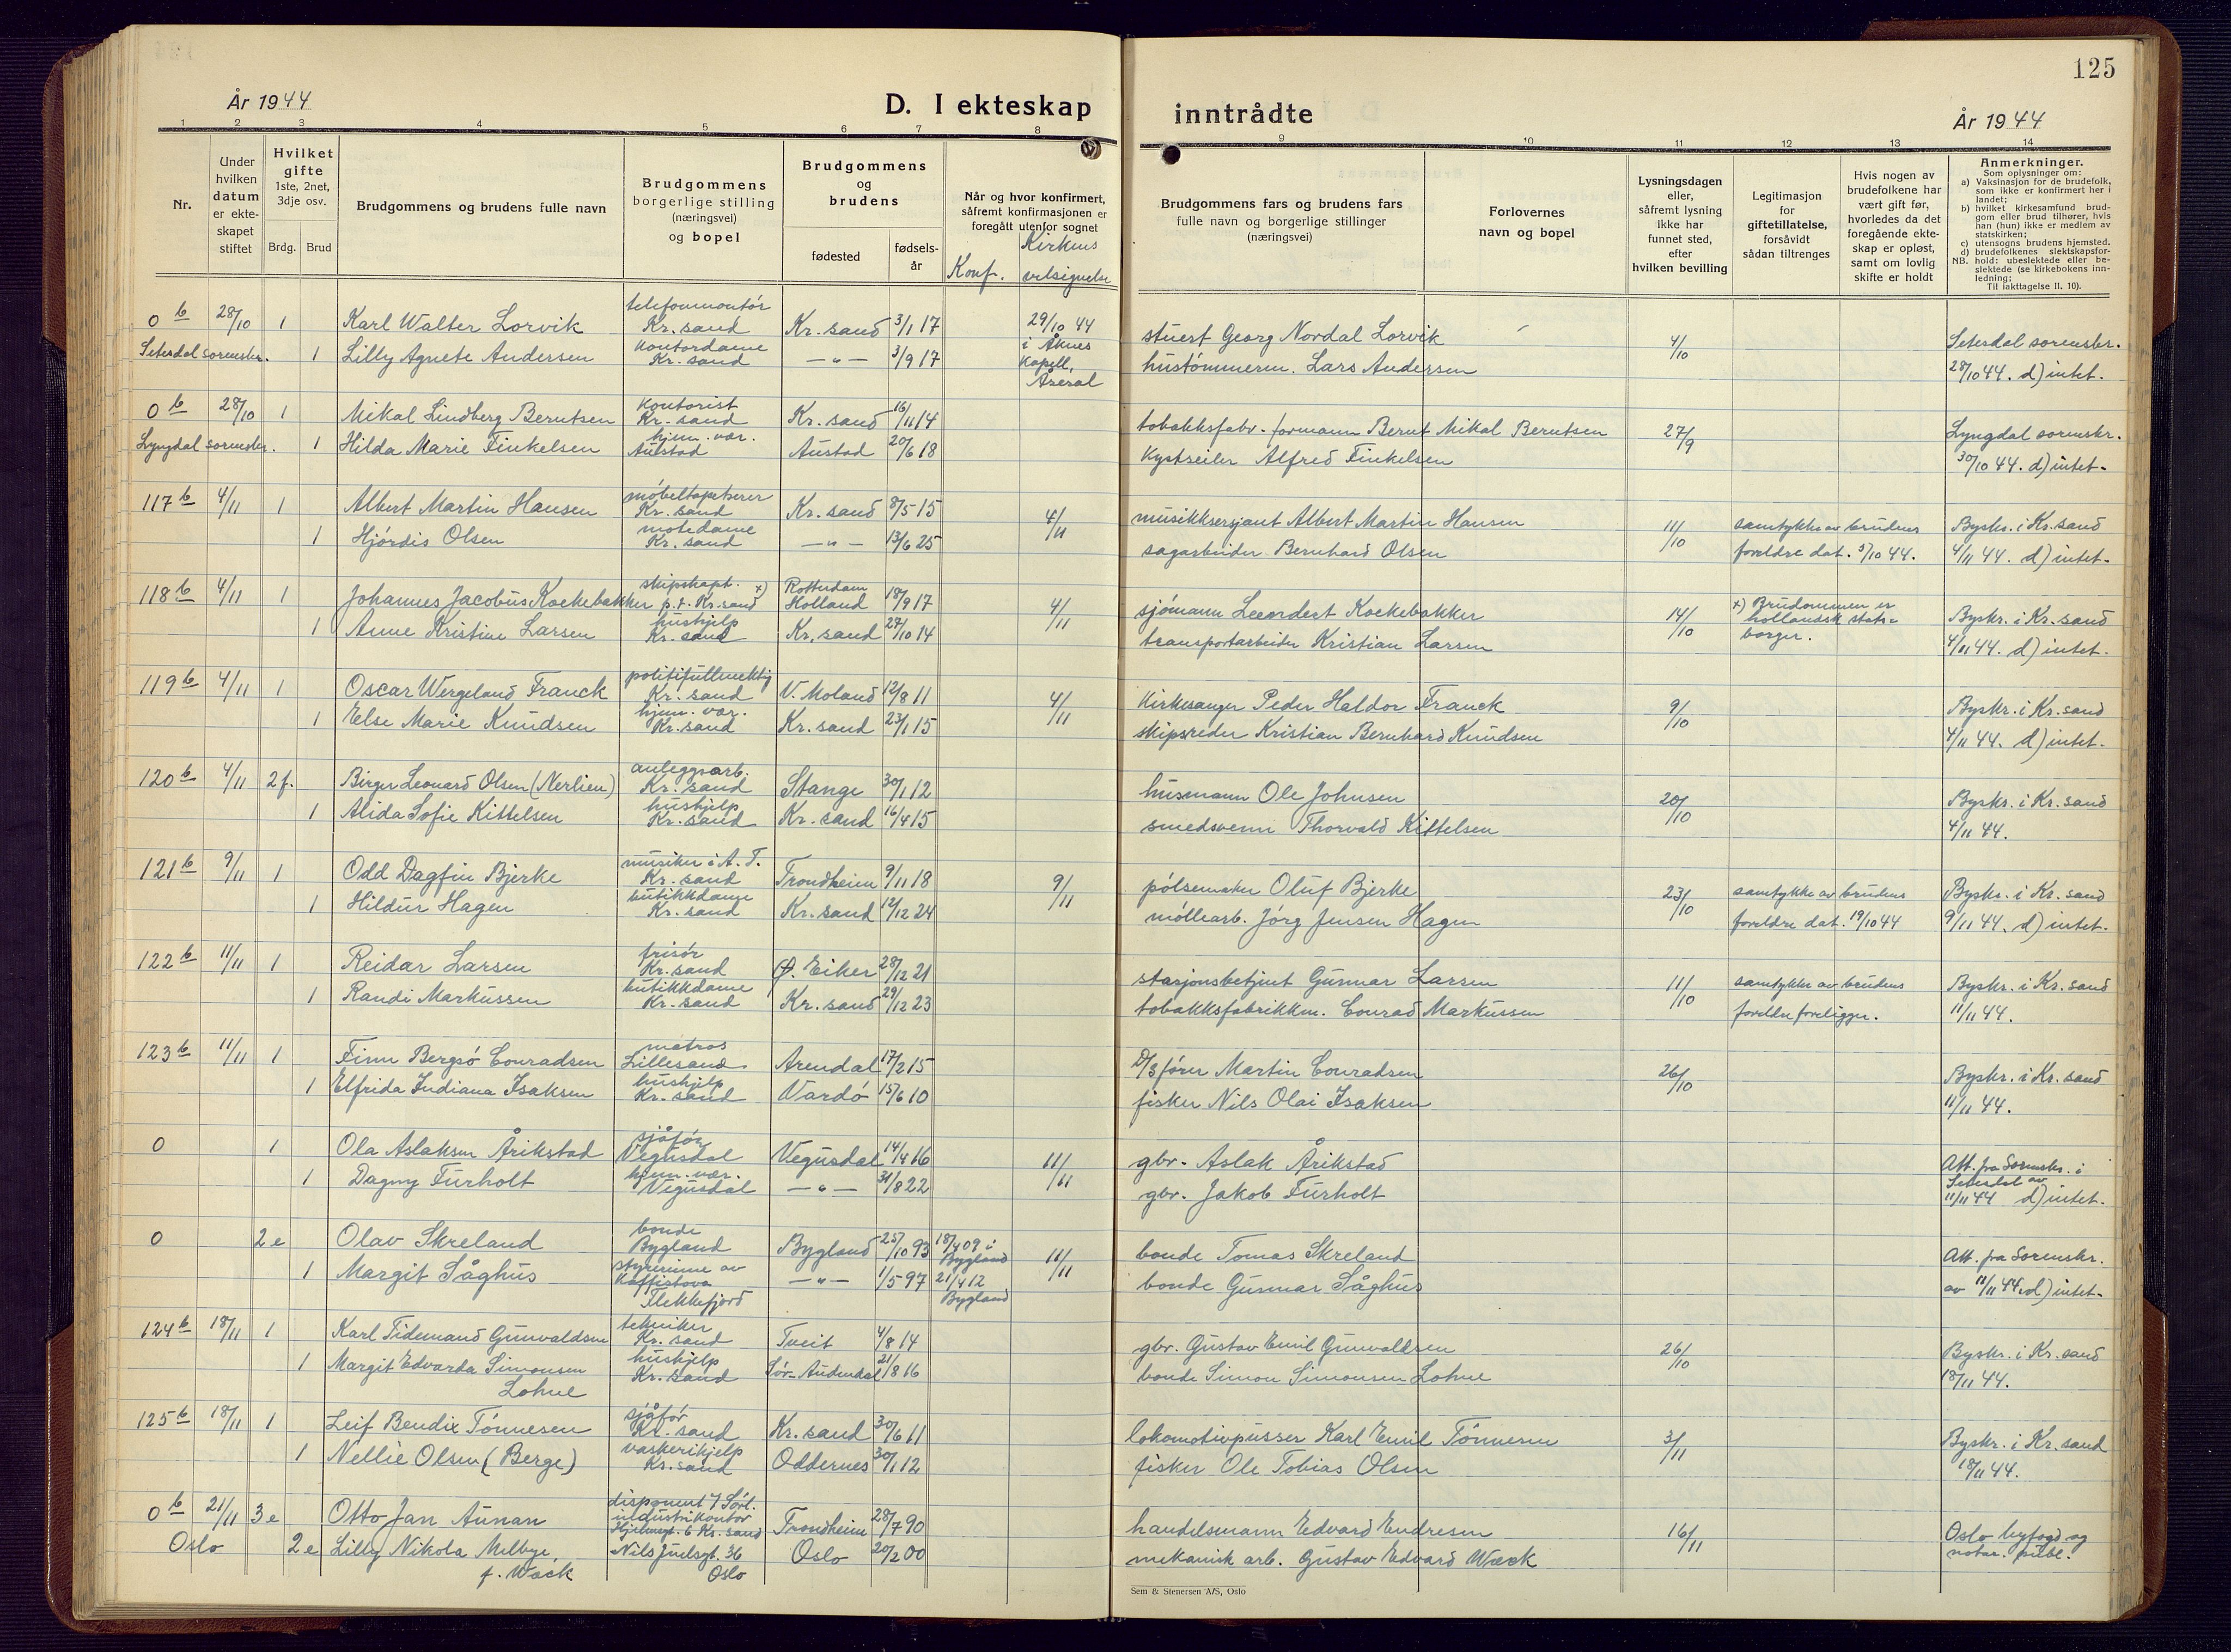 125
År 1944
D. I ekteskap
inntrådte
År 1944
1 2 3 4 5 6 7 8 9 10 11 12 13 14
Nr.
Under
hvilken
datum
er ekte-
skapet
stiftet
Hvilket
gifte
1ste, 2net,
3dje osv.
Brdg. Brud
Brudgommens og brudens fulle navn
Brudgommens
borgerlige stilling
(næringsvei)
og bopel
Brudgommens
og
brudens
fødested
fødsels-
år
Når og hvor konfirmert,
såfremt konfirmasjonen er
foregått utenfor sognet
Konf.
Kirkens
velsignelse
Brudgommens fars og brudens fars
fulle navn og borgerlige stillinger
(næringsvei)
Forlovernes
navn og bopel
Lysningsdagen
eller,
såfremt lysning
ikke har
funnet sted,
efter
hvilken bevilling
Legitimasjon
for
giftetillatelse,
forsåvidt
sådan tiltrenges
Hvis nogen av
brudefolkene har
vært gift før,
hvorledes da det
foregående ekte-
skap er opløst,
samt om lovlig
skifte er holdt
Anmerkninger.
Som oplysninger om:
a) Vaksinasjon for de brudefolk,
som ikke er konfirmert her i
landet;
b) hvilket kirkesamfund brud-
gom eller brud tilhører, hvis
han (hun) ikke er medlem av
statskirken;
c) utensogns brudens hjemsted.
d) brudefolkenes slektskapsfor-
hold: ubeslektede eller be-
slektede (se kirkebokens inn-
ledning;
NB.
Til iakttagelse II. 10).
0 b 28/10 1 Karl Walter Lorvik telefonmontør Kr.sand Kr.sand 3/1 17 29/10 44 stuert Georg Nordal Lorvik 4/10 Setesdal sorenskr.
Setesdal sorenskr. 1 Lilly Agnete Andersen kontordame Kr.sand —"— 3/9 17 i Åknes kapell, Åseral hustømmerm. Lars Andersen 28/10 44. d) intet.
0 b 28/10 1 Mikal Lindberg Berntsen kontorist Kr.sand Kr.sand 16/11 14 tobakksfabr.formann Bernt Mikal Berntsen 27/9 Lyngdal sorenskr.
Lyngdal sorenskr. 1 Hilda Marie Finkelsen hjem.vær. Austad Austad 20/6 18 Kystseiler Alfred Finkelsen 30/10 44. d) intet.
117 b 4/11 1 Albert Martin Hansen møbeltapetserer Kr.sand Kr.sand 8/5 15 4/11 musikksersjant Albert Martin Hansen 11/10 samtykke av brudens Byskr. i Kr.sand
1 Hjørdis Olsen motedame Kr.sand —"— 13/6 25 sagarbeider Bernhard Olsen foreldre dat. 5/10 44. 4/11 44. d) intet.
118 b 4/11 1 Johannes Jacobus Koekebakker skipskapt. x) p.t. Kr.sand Rotterdam Holland 18/9 17 4/11 sjømann Leendert Koekebakker 14/10 x) Brudommen er hollandsk stats- borger. Byskr. i Kr.sand
1 Anne Kristine Larsen hushjelp Kr.sand Kr.sand 27/10 14 transportarbeider Kristian Larsen 4/11 44. d) intet.
119 b 4/11 1 Oscar Wergeland Franck politifullmektig Kr.sand V. Moland 12/8 11 4/11 Kirkesanger Peder Haldor Franck 9/10 Byskr. i Kr.sand
1 Else Marie Knudsen hjem.vær. Kr.sand Kr.sand 23/1 15 skipsreder Kristian Bernhard Knudsen 4/11 44. d) intet.
120 b 4/11 2 f. Birger Leonard Olsen (Nerlien) anleggsarb. Kr.sand Stange 30/1 12 husmann Ole Johnsen 20/10 Byskr. i Kr.sand
1 Alida Sofie Kittelsen hushjelp Kr.sand Kr.sand 16/4 15 smedsvenn Thorvald Kittelsen 4/11 44.
121 b 9/11 1 Odd Dagfin Bjerke musiker i A.T. Kr.sand Trondheim 9/11 18 9/11 pølsemaker Oluf Bjerke 23/10 samtykke av brudens Byskr. i Kr.sand
1 Hildur Hagen butikkdame Kr.sand Kr.sand 12/12 24 møllearb. Jörg Jensen Hagen foreldre dat. 19/10 44 9/11 44. d) intet.
122 b 11/11 1 Reidar Larsen frisør Kr.sand Ø. Eiker 28/12 21 stasjonsbetjent Gunnar Larsen 11/10 samtykke av brudens Byskr. i Kr.sand
1 Randi Markussen butikkdame Kr.sand Kr.sand 29/12 23 tobakksfabrikkm. Conrad Markussen foreldre foreligger. 11/11 44.
123 b 11/11 1 Finn Bergsø Conradsen matros Lillesand Arendal 17/2 15 D/S fører Martin Conradsen 26/10 Byskr. i Kr.sand
1 Elfrida Indiana Isaksen hushjelp Kr.sand Vardø 15/6 10 fisker Nils Olai Isaksen 11/11 44.
0 1 Ola Aslaksen Årikstad sjåfør Vegusdal Vegusdal 14/4 16 11/11 gbr. Aslak Årikstad Att. fra Sorenskr. i
1 Dagny Furholt hjem.vær. Vegusdal —"— 31/8 22 gbr. Jakob Furholt Setesdal av 11/11 44 d) intet.
0 2 e Olav Skreland bonde Bygland Bygland 25/10 93 18/4 09 i Bygland 11/11 bonde Tomas Skreland Att. fra Sorenskr.
1 Margit Såghus styrerinne av Kaffistova Flekkefjord —"— 1/5 97 21/4 12 Bygland bonde Gunnar Såghus av 11/11 44. d) intet.
124 b 18/11 1 Karl Tidemand Gunvaldsen tekniker Kr.sand Tveit 4/8 14 gbr. Gustav Emil Gunvaldsen 26/10 Byskr. i Kr.sand
1 Margit Edvarda Simonsen Lohne hushjelp Kr.sand Sør-Audnedal 21/8 16 bonde Simon Simonsen Lohne 18/11 44.
125 b 18/11 1 Leif Bendix Tønnesen sjåfør Kr.sand Kr.sand 30/6 11 lokomotivpusser Karl Emil Tønnesen 3/11 Byskr. i Kr.sand
1 Nellie Olsen (Berge) vaskerihjelp Kr.sand Oddernes 30/1 12 fisker Ole Tobias Olsen 18/11 44.
0 b 21/11 3 e Otto Jan Aunan disponent i Sørl. industrikontor 6 Kr.sand Trondheim 28/7 90 handelsmann Edvard Endresen 16/11 Oslo byfogd og
Oslo 2 e Lilly Nikola Melbye, f. Wæck Nils Juelsgt. 36 Oslo Oslo 20/2 00 mekanisk arb. Gustav Edvard Wæck notar. publ.
Sem & Stenersen A/S, Oslo